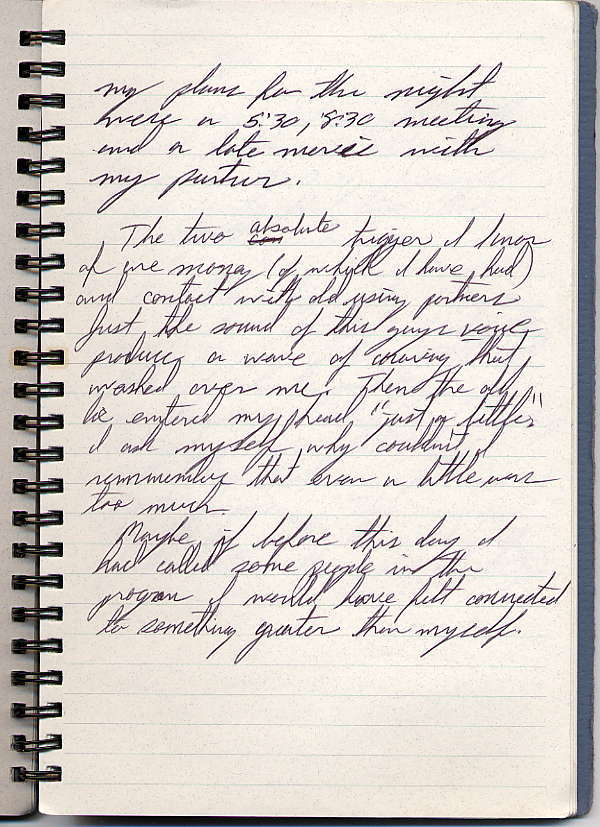 my plans for the night
were a 5:30, 8:30 meeting
and a late movie with
my partner.
The two absolute trigger I know
of are money (of which I have had)
and contact with old using partners
Just the sound of this guys voice
produce a wave of craving that
washed over me. Then the old
lie entered my head "just a little"
I ask myself why couldn't I
remmember that even a little was
too much.
Maybe if before this day I
had called some people in the
program I would have felt connected
to something greater than myself.